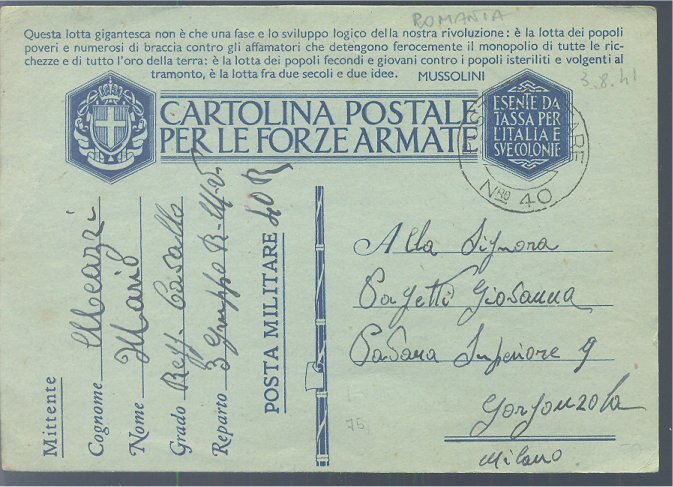 ROMANIA
Questa lotta gigantesca non è che una fase e lo sviluppo logico della nostra rivoluzione: è la lotta dei popoli
poveri e numerosi di braccia contro gli affamatori che detengono ferocemente il monopolio di tutte le ric-
chezze e di tutto l'oro della terra: è la lotta dei popoli fecondi e giovani contro i popoli isteriliti e volgenti al
tramonto, è la lotta fra due secoli e due idee. MUSSOLINI
3.8.41
CARTOLINA POSTALE
PER LE FORZE ARMATE
ESENTE DA
TASSA PER
L'ITALIA E
SVE COLONIE
Nro 40
Mittente
Cognome Meazzi
Nome Mario
Grado
Reparto 3 Gruppo
POSTA MILITARE 40 R
Alla Signora
Giovanna
Superiore 9
Gorgonzola
Milano
75